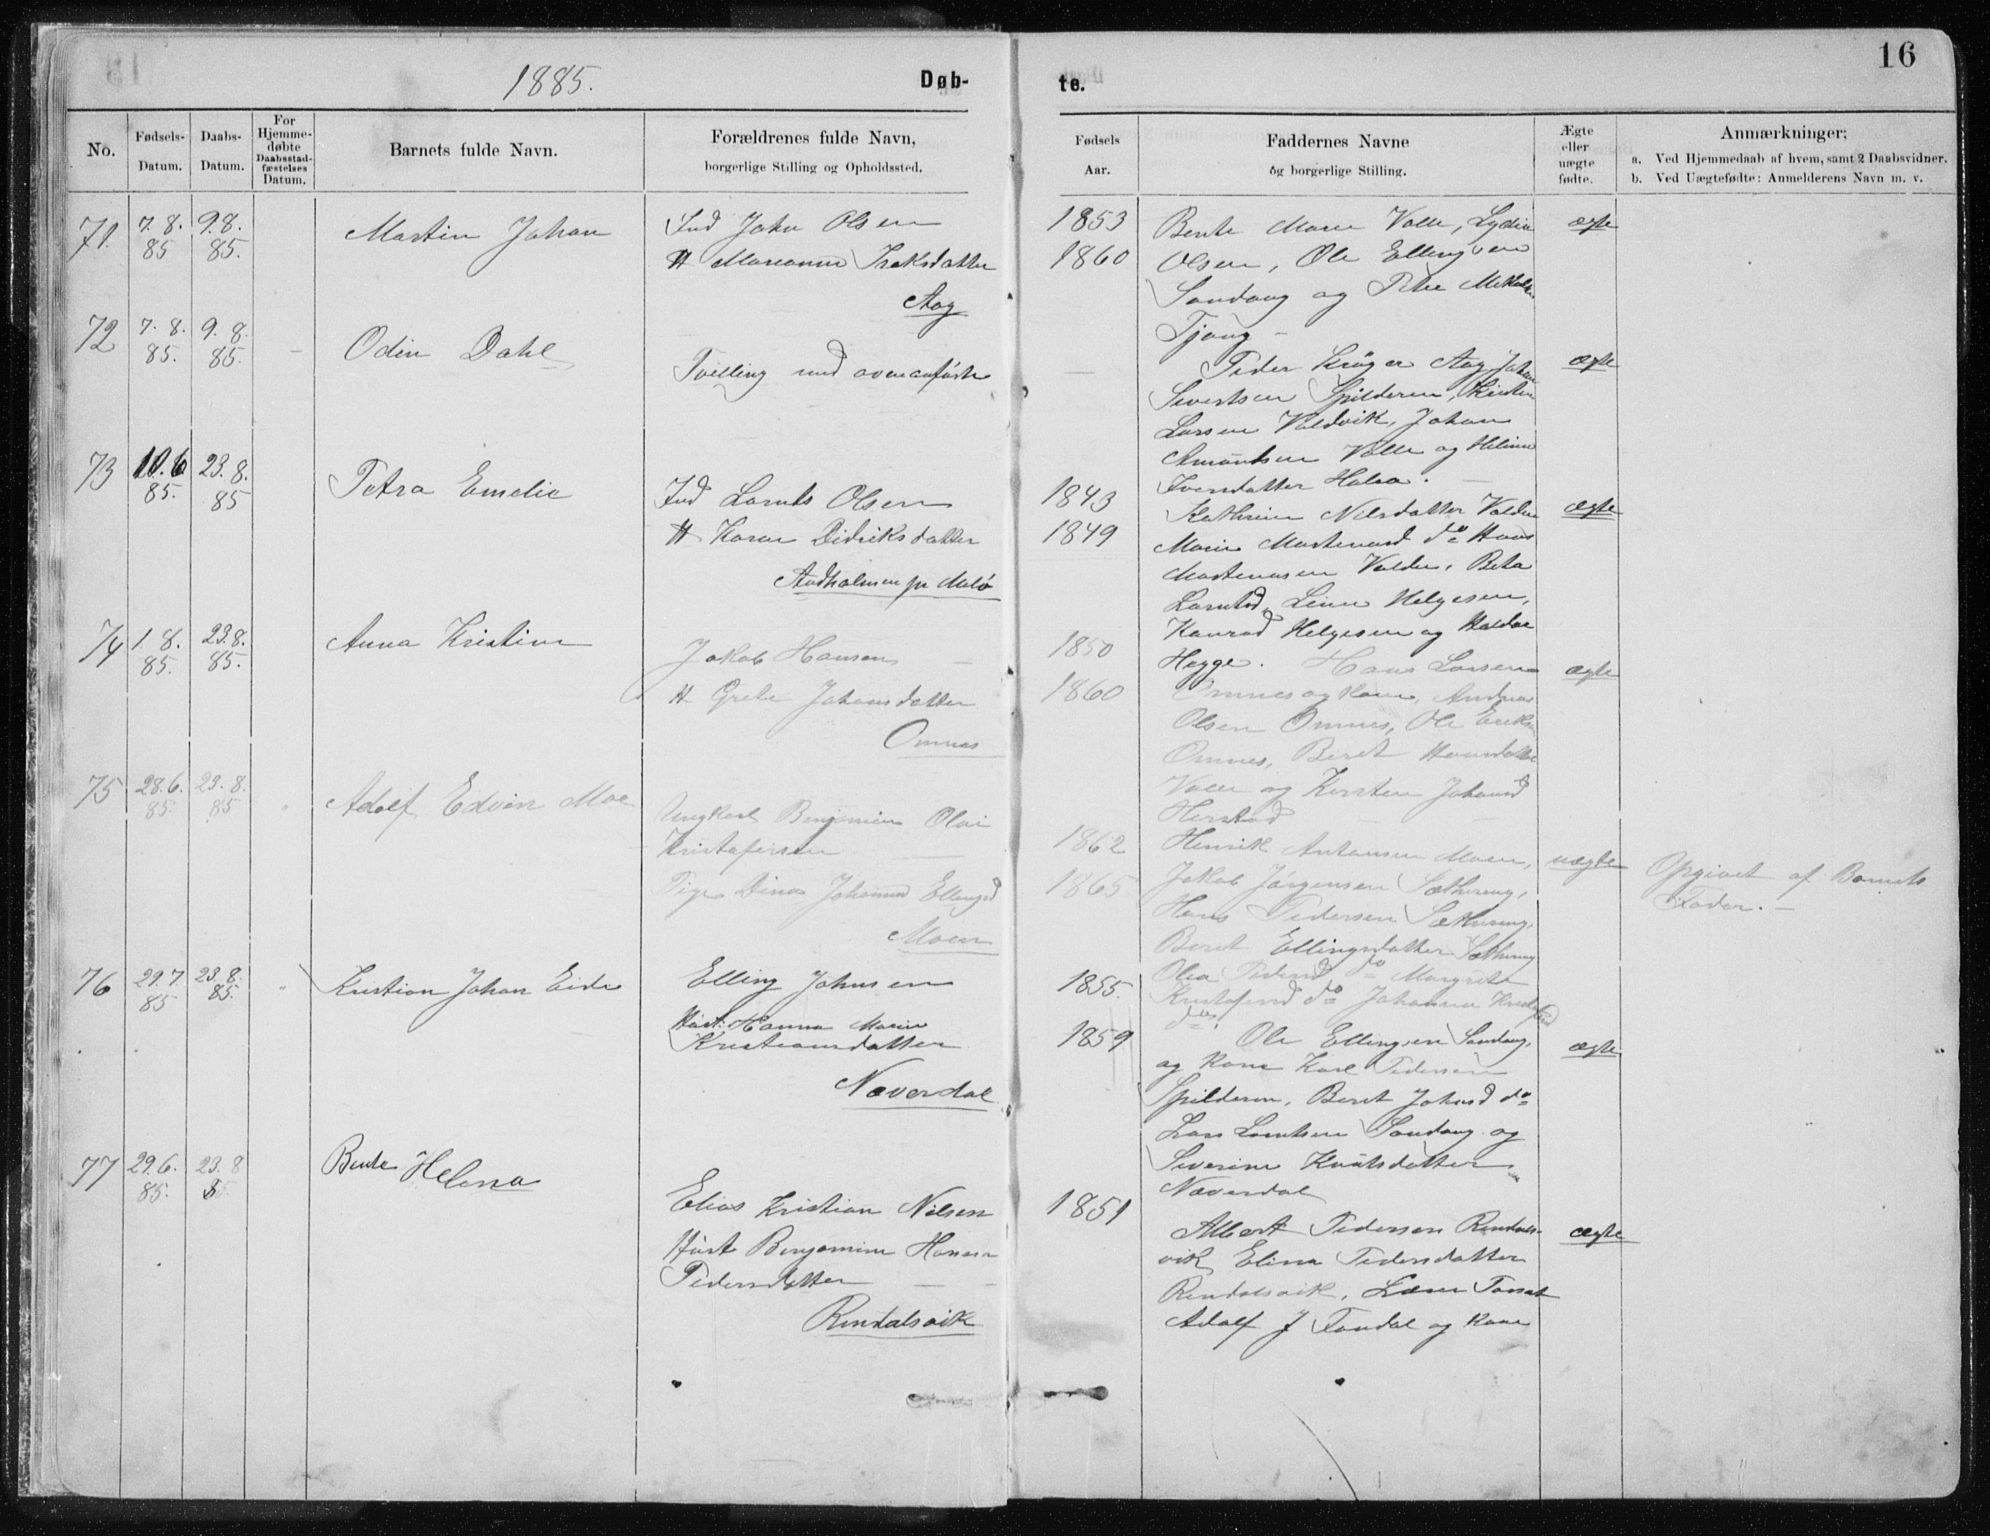 16
1885.
Døb-
te.
No.
Fødsels-
Datum.
Daabs-
Datum.
For
Hjemme-
døbte
Daabsstad-
fæstelses
Datum.
Barnets fulde Navn.
Forældrenes fulde Navn,
borgerlige Stilling og Opholdssted.
Fødsels
Aar.
Faddernes Navne
og borgerlige Stilling.
Ægte
eller
uægte
fødte.
Anmærkninger;
a. Ved Hjemmedaab af hvem, samt 2 Daabsvidner.
b. Ved Uægtefødte: Anmelderens Navn m. v.
71
7. 8.
85
9. 8.
85.
Martin Johan
Ind John Olsen
H Marianna Isaksdatter
Aag
1853
1860
Bente Marie Valle, Lydia
Olsen, Ole Ellingsen
Sandaag og Peter
Tjong –
ægte
72
7. 8.
85.
9. 8.
85.
–
Odin Dahl
Tvilling med ovenanførte
—
Peder Krüger Aag, Johan
Sivertsen Spilderen,
Larsen Valdvik, Johan
Amundsen Valle og
Iversdatter
ægte
73
10. 6
85.
23. 8.
85
Petra Emelie
Ind Lornts Olsen
H Karen Didriksdatter
Andholmen pr Melø
1843
1849
Kathrine Nilsdatter
Marie do Hans
Beta
Lorntsd, Line Helgesen,
Konrad Helgesen og
Hegge.
ægte
74
1. 8.
85.
23. 8.
85.
Anna Kristine
Jakob Hansen —
H Grete Johansdatter
Omnes
1850
1860
Hans Larsen
Omnes og Kone, Andreas
Olsen Omnes, Ole
Omnes, Beret Hansdatter
Valle og Kirsten Johansd
ægte
75
28. 6.
85.
23. 8.
85
"
Adolf Edvin Moe
Ungkarl Benjamin Olai
Kristofersen —
Pige Dina Johanna Ellingsd
Moen
1862
1865
Henrik Antonsen Moen,
Jakob Jörgensen
Hans Pedersen
Beret Ellingsdatter
Olea Pedersd do Margrete
Kristofersd do Johanna
do.
uægte
Opgivet af Barnets
Fader. –
76
29. 7
85
23. 8.
85.
"
Kristian Johan Eide
Elling Johnsen
Hust. Hanna Marie
Kristiansdatter
Næverdal
1855.
1859
Ole Ellingsen Sandaag,
og Kone Karl Pedersen
Spilderen, Beret Johnsd do
Lars Lorntsen Sandaag og
Severine Knutsdatter
Næverdal
ægte
77
29. 6.
85.
23. 8
85.
Bente Helena
Elias Kristian Nilsen
Hust Benjamine Hanna
Pedersdatter — –
Rendalsvik
1851
Albert Pedersen Rendals-
vik, Elina Pedersdatter
Rendalsvik, Lærer
Adolf J Fondal og Kone
ægte